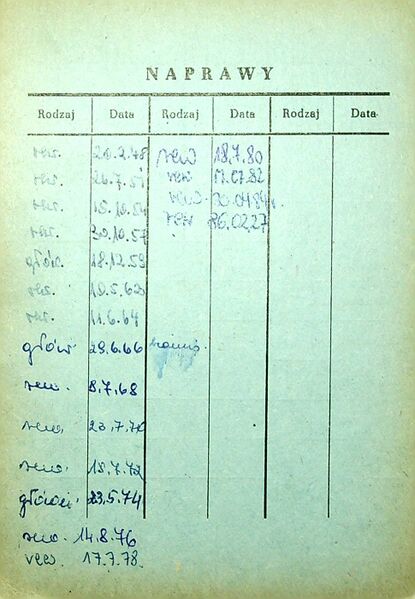 NAPRAWY
Rodzaj Data Rodzaj Data Rodzaj Data
rew. 20.2.48 rew 18.7.80
rew. 20.7.51 rew 17.07.82
rew. 15.10.54 rew. 30.04.84r.
rew. 30.10.57 rew 86.02.27
główn. 18.12.59
rew. 10.5.62
rew. 11.6.64
główn. 29.6.66
rew. 8.7.68
rew. 23.7.70
rew. 15.7.72
główn. 23.5.74
rew. 14.8.76
rew. 17.7.78.